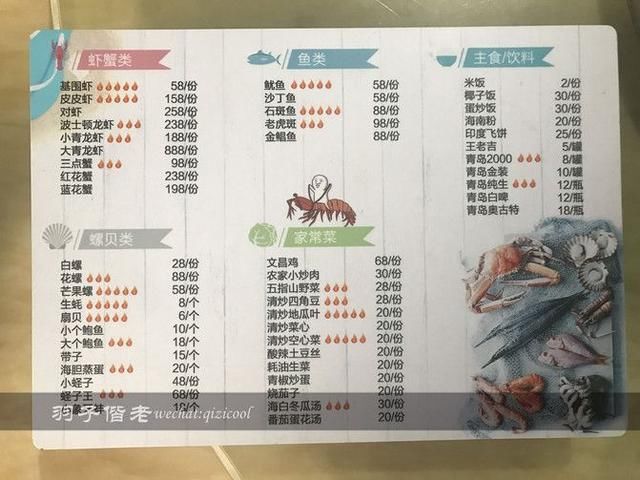 虾蟹类
基围虾 58/份
皮皮虾 158/份
对虾 258/份
波士顿龙虾 238/份
小青龙虾 188/份
大青龙虾 888/份
三点蟹 98/份
红花蟹 238/份
蓝花蟹 198/份
鱼类
鱿鱼 58/份
沙丁鱼 58/份
石斑鱼 88/份
老虎斑 98/份
金鲳鱼 88/份
主食/饮料
米饭 2/份
椰子饭 30/份
蛋炒饭 30/份
海南粉 20/份
印度飞饼 25/份
王老吉 5/罐
青岛2000 8/罐
青岛金装 10/罐
青岛纯生 12/瓶
青岛白啤 12/瓶
青岛奥古特 18/瓶
螺贝类
白螺 28/份
花螺 88/份
芒果螺 58/份
生蚝 8/个
扇贝 6/个
小个鲍鱼 10/个
大个鲍鱼 18/个
带子 15/个
海胆蒸蛋 20/个
小蛏子 48/份
蛏子王 68/份
18/个
家常菜
文昌鸡 68/份
农家小炒肉 30/份
五指山野菜 20/份
清炒四角豆 20/份
清炒地瓜叶 20/份
清炒菜心 20/份
清炒空心菜 20/份
酸辣土豆丝 20/份
耗油生菜 20/份
青椒炒蛋 20/份
烧茄子 20/份
海白冬瓜汤 30/份
番茄蛋花汤 20/份
羽子偕老 wechat:qizicool